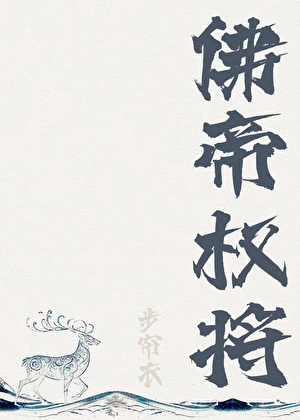 佛帝权将
步帘衣